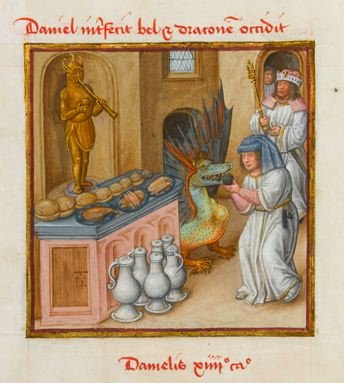 Daniel int̄fecit bel ⁊ draconē occidit
Danielis xiiii° ca°